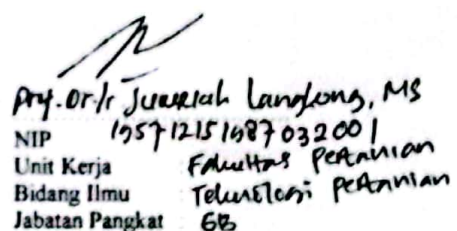 Prof. Dr. Ir. Jumriah Langkong, MS
NIP 195712151987032001
Unit Kerja Fakultas Pertanian
Bidang Ilmu Teknologi Pertanian
Jabatan Pangkat GB